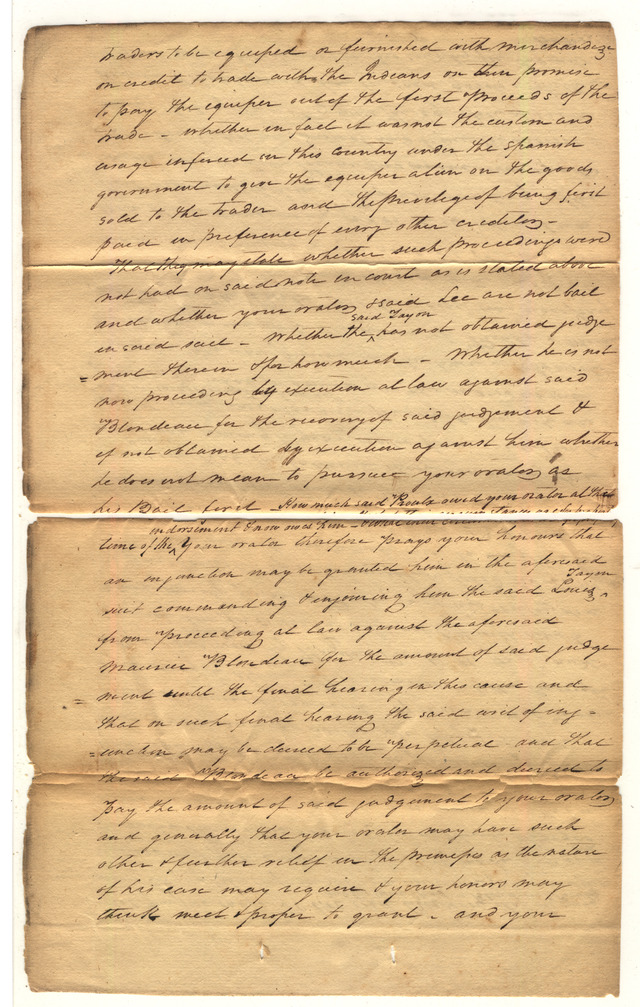 traders to be equiped or furnished with merchandize
on credit to trade with the Indians on their promise
to pay the equiper out of the first proceeds of the
trade - whether in fact it was not the custom and
usage in forced in this country under the spanish
government to give the equiper a lien on the goods
sold to the trader and the privelege of being first
paid in preference of every other creditor -
That they may state whether such proceedings were
not had on said note in court as is stated above
and whether your orator & said Lee are not bail
said Tayon
in said suit - Whether the ^ has not obtained judge
= ment therein & for how much - Whether he is not
now proceeding by execution at law against said
Blondeau for the recovery of said judgement &
if not obtained by execution against him whether
he does not mean to pursue your orator as
his Bail first - How much said owed your orator at the
indorsment & now owes him -
time of the ^ your orator therefore prays your honours that
an injunction may be granted him in the aforesaid
Tayon
suit commanding & enjoining him the said Louis ^
from proceeding at law against the aforesaid
Maurice Blondeau for the amount of said judge
= ment until the final hearing in this cause and
that on such final hearing the said writ of inj =
= unction may be decreed to be perpetual and that
the said Blondeau be authorized and decreed to
pay the amount of said judgement to your orator
and generally that your orator may have such
other & further relief in the premises as the nature
of his case may require & your honors may
think meet & proper to grant - and your